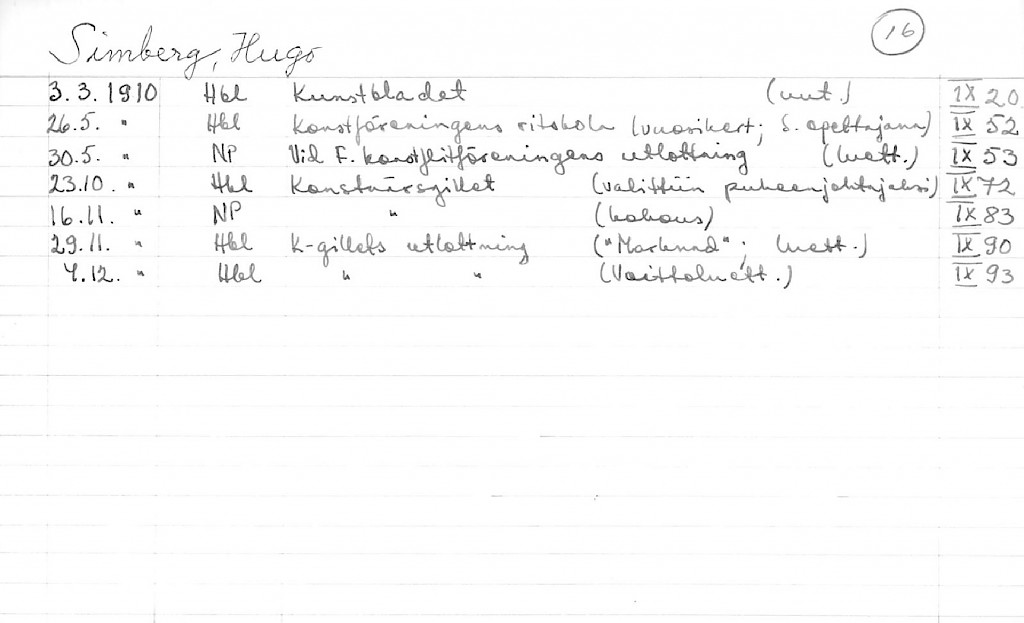 16
Simberg, Hugo
3.3.1910 Hbl Kunstbladet (uut.) IX 20
26.5. " Hbl Konstföreningens ritskola (vuosikert; S. opettajana) IX 52
30.5. " NP Vid F. konstflitföreningens utlottning (luett.) IX 53
23.10. " Hbl Konstnärsgillet (valittiin puheenjohtajaksi) IX 72
16.11. " NP " (kokous) IX 83
29.11. " Hbl K-gillets utlottning ("Marknad"; luett.) IX 90
4.12. " Hbl " " (Voittoluett.) IX 93